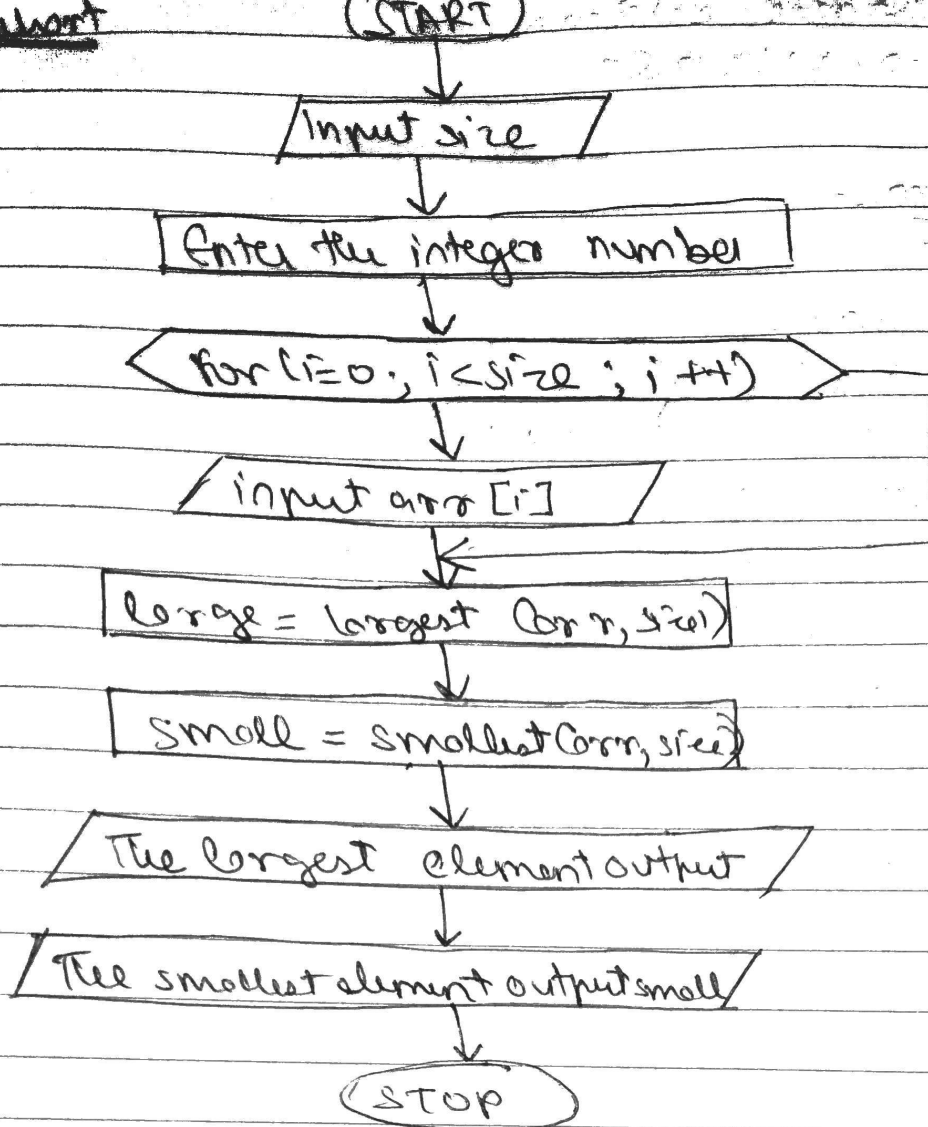 START
Input size
Enter the integer number
for (i=0; i<size; i++)
input arr [i]
large = largest (arr, size)
small = smallest (arr, size)
The largest element output
The smallest element output small
STOP